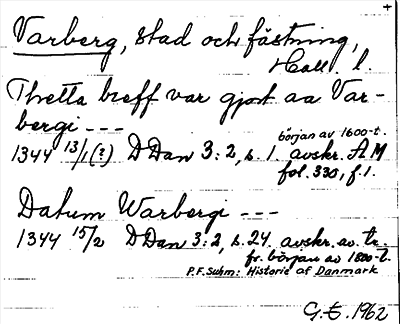 +
Varberg, stad och fästning,
Hall. l.
Thetta breff var gjort aa Var-
bergi ---
början av 1600-t.
1344 13/1(?) D Dan 3:2, s. 1. avskr. A M
fol. 330, f. 1.
Datum Warbergi ---
1344 15/2 D Dan 3:2, s. 24. avskr. av tr.
fr. början av 1800-t.
P.F. Suhm: Historie af Danmark
G.E. 1962